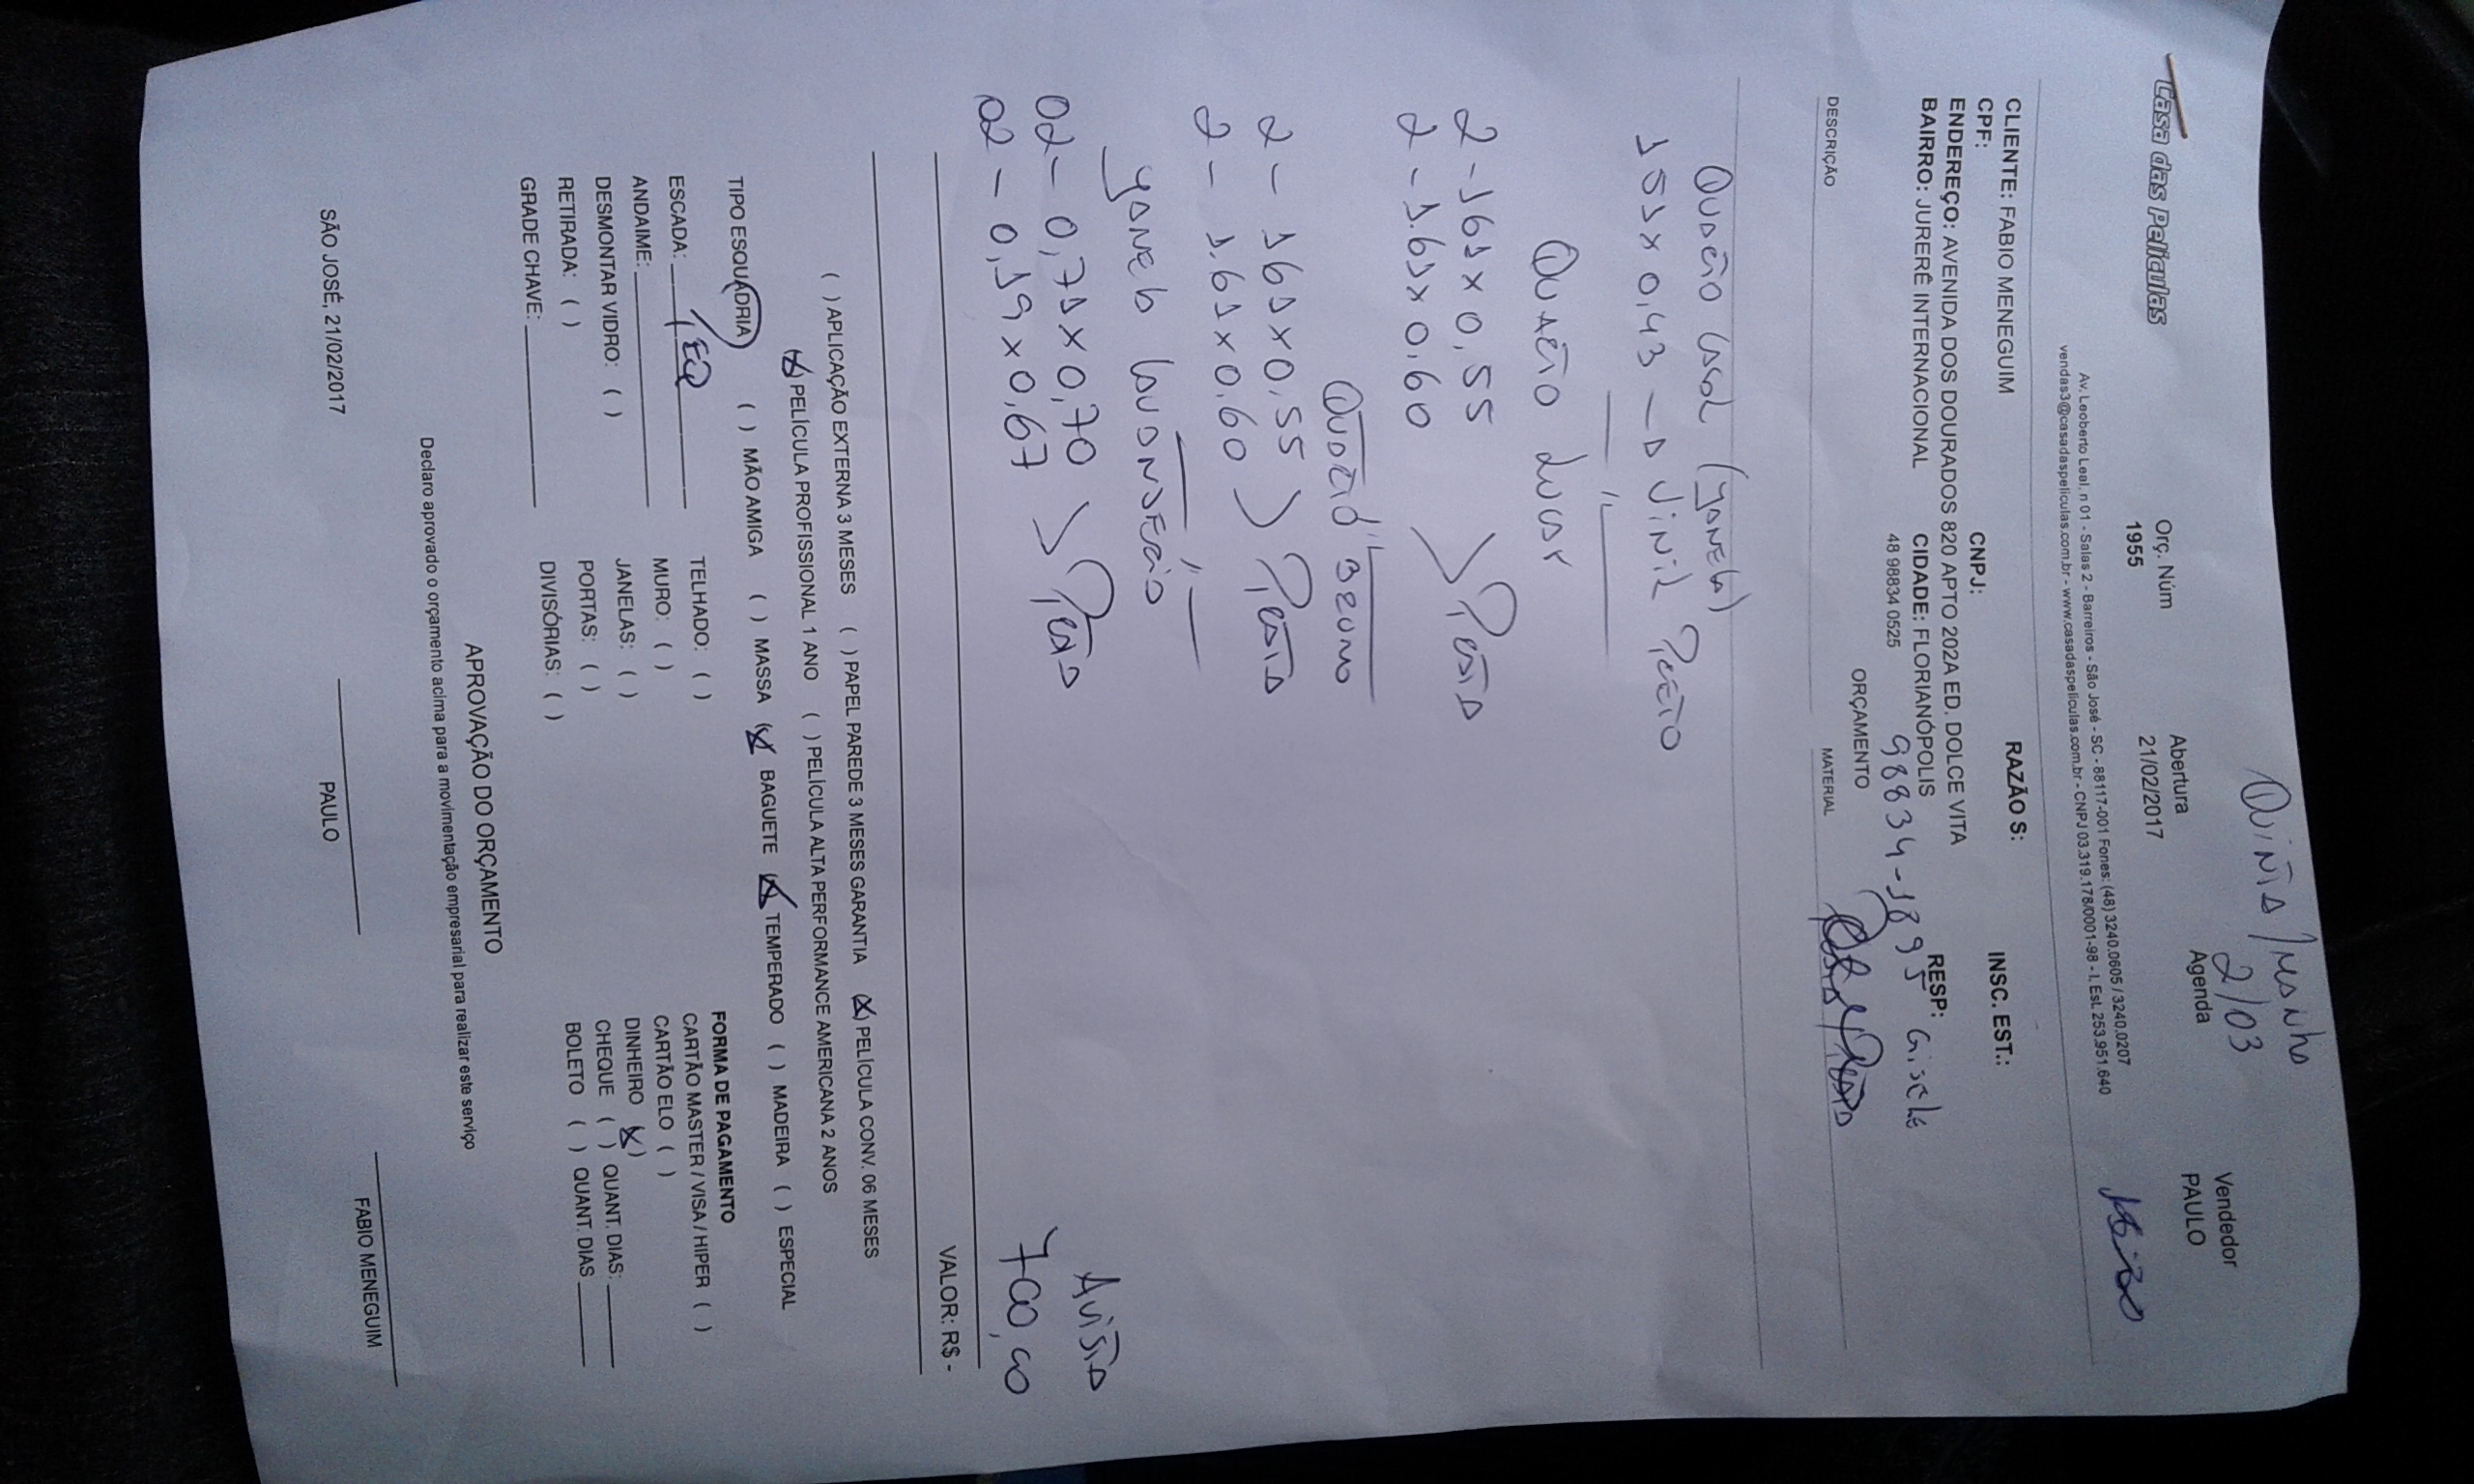 Quinta / manhã
2/03
Casa das Peliculas
Orç. Núm
1955
Abertura
21/02/2017
Agenda
Vendedor
PAULO
Av. Leoberto Leal, n 01 - Salas 2 - Barreiros - São José - SC - 88117-001 Fones: (48) 3240.0605 / 3240.0207
vendas3@casadaspeliculas.com.br - www.casadaspeliculas.com.br - CNPJ 03.319.178/0001-98 - I. Est. 253.951.640
CLIENTE: FABIO MENEGUIM RAZÃO S:
CPF: CNPJ: INSC. EST.:
ENDEREÇO: AVENIDA DOS DOURADOS 820 APTO 202A ED. DOLCE VITA
BAIRRO: JURERÊ INTERNACIONAL CIDADE: FLORIANÓPOLIS RESP:
48 98834 0525 98834-1895 Gisele
ORÇAMENTO
DESCRIÇÃO MATERIAL
Quarto Casal (Janela)
151 x 0,43 - Vinil Preto
Quarto Lucas
2 - 161 x 0,55
2 - 1.61 x 0.60 > Preta
Quarto Bruno
2 - 161 x 0,55
2 - 1.61 x 0.60 > Preta
Janela Lavanderia
02 - 0,71 x 0,70
02 - 0,19 x 0,67 > Preta
Avista
700,00
VALOR: R$ -
( ) APLICAÇÃO EXTERNA 3 MESES ( ) PAPEL PAREDE 3 MESES GARANTIA (X) PELÍCULA CONV. 06 MESES
(X) PELÍCULA PROFISSIONAL 1 ANO ( ) PELÍCULA ALTA PERFORMANCE AMERICANA 2 ANOS
TIPO ESQUADRIA ( ) MÃO AMIGA ( ) MASSA (X) BAGUETE (X) TEMPERADO ( ) MADEIRA ( ) ESPECIAL
ESCADA: TELHADO: ( )
ANDAIME: MURO: ( )
DESMONTAR VIDRO: ( ) JANELAS: ( )
RETIRADA: ( ) PORTAS: ( )
GRADE CHAVE: DIVISÓRIAS: ( )
FORMA DE PAGAMENTO
CARTÃO MASTER / VISA / HIPER ( )
CARTÃO ELO ( )
DINHEIRO (X)
CHEQUE ( ) QUANT. DIAS:
BOLETO ( ) QUANT. DIAS
APROVAÇÃO DO ORÇAMENTO
Declaro aprovado o orçamento acima para a movimentação empresarial para realizar este serviço
SÃO JOSÉ, 21/02/2017
PAULO
FABIO MENEGUIM